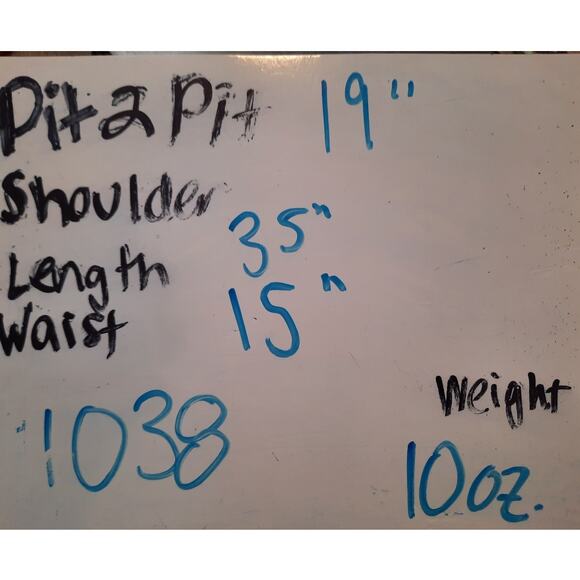 Pit 2 Pit 19"
Shoulder
Length 35"
Waist 15"
Weight
1038
10 oz.